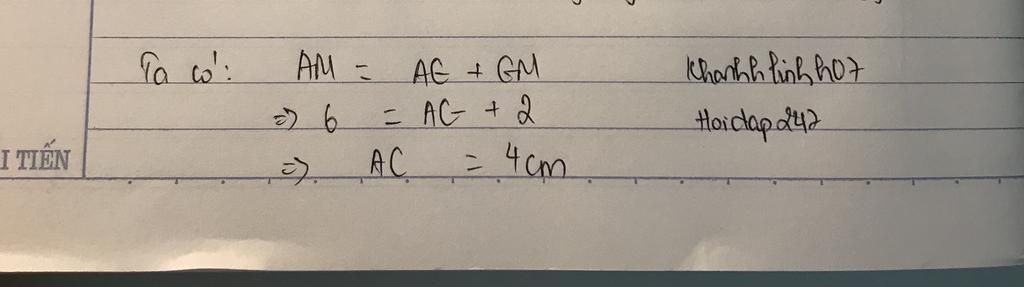 Ta có: AM = AG + GM
Khanhhlinhh07
=> 6 = AG + 2
Hoidap247
=> AC = 4cm
I TIẾN